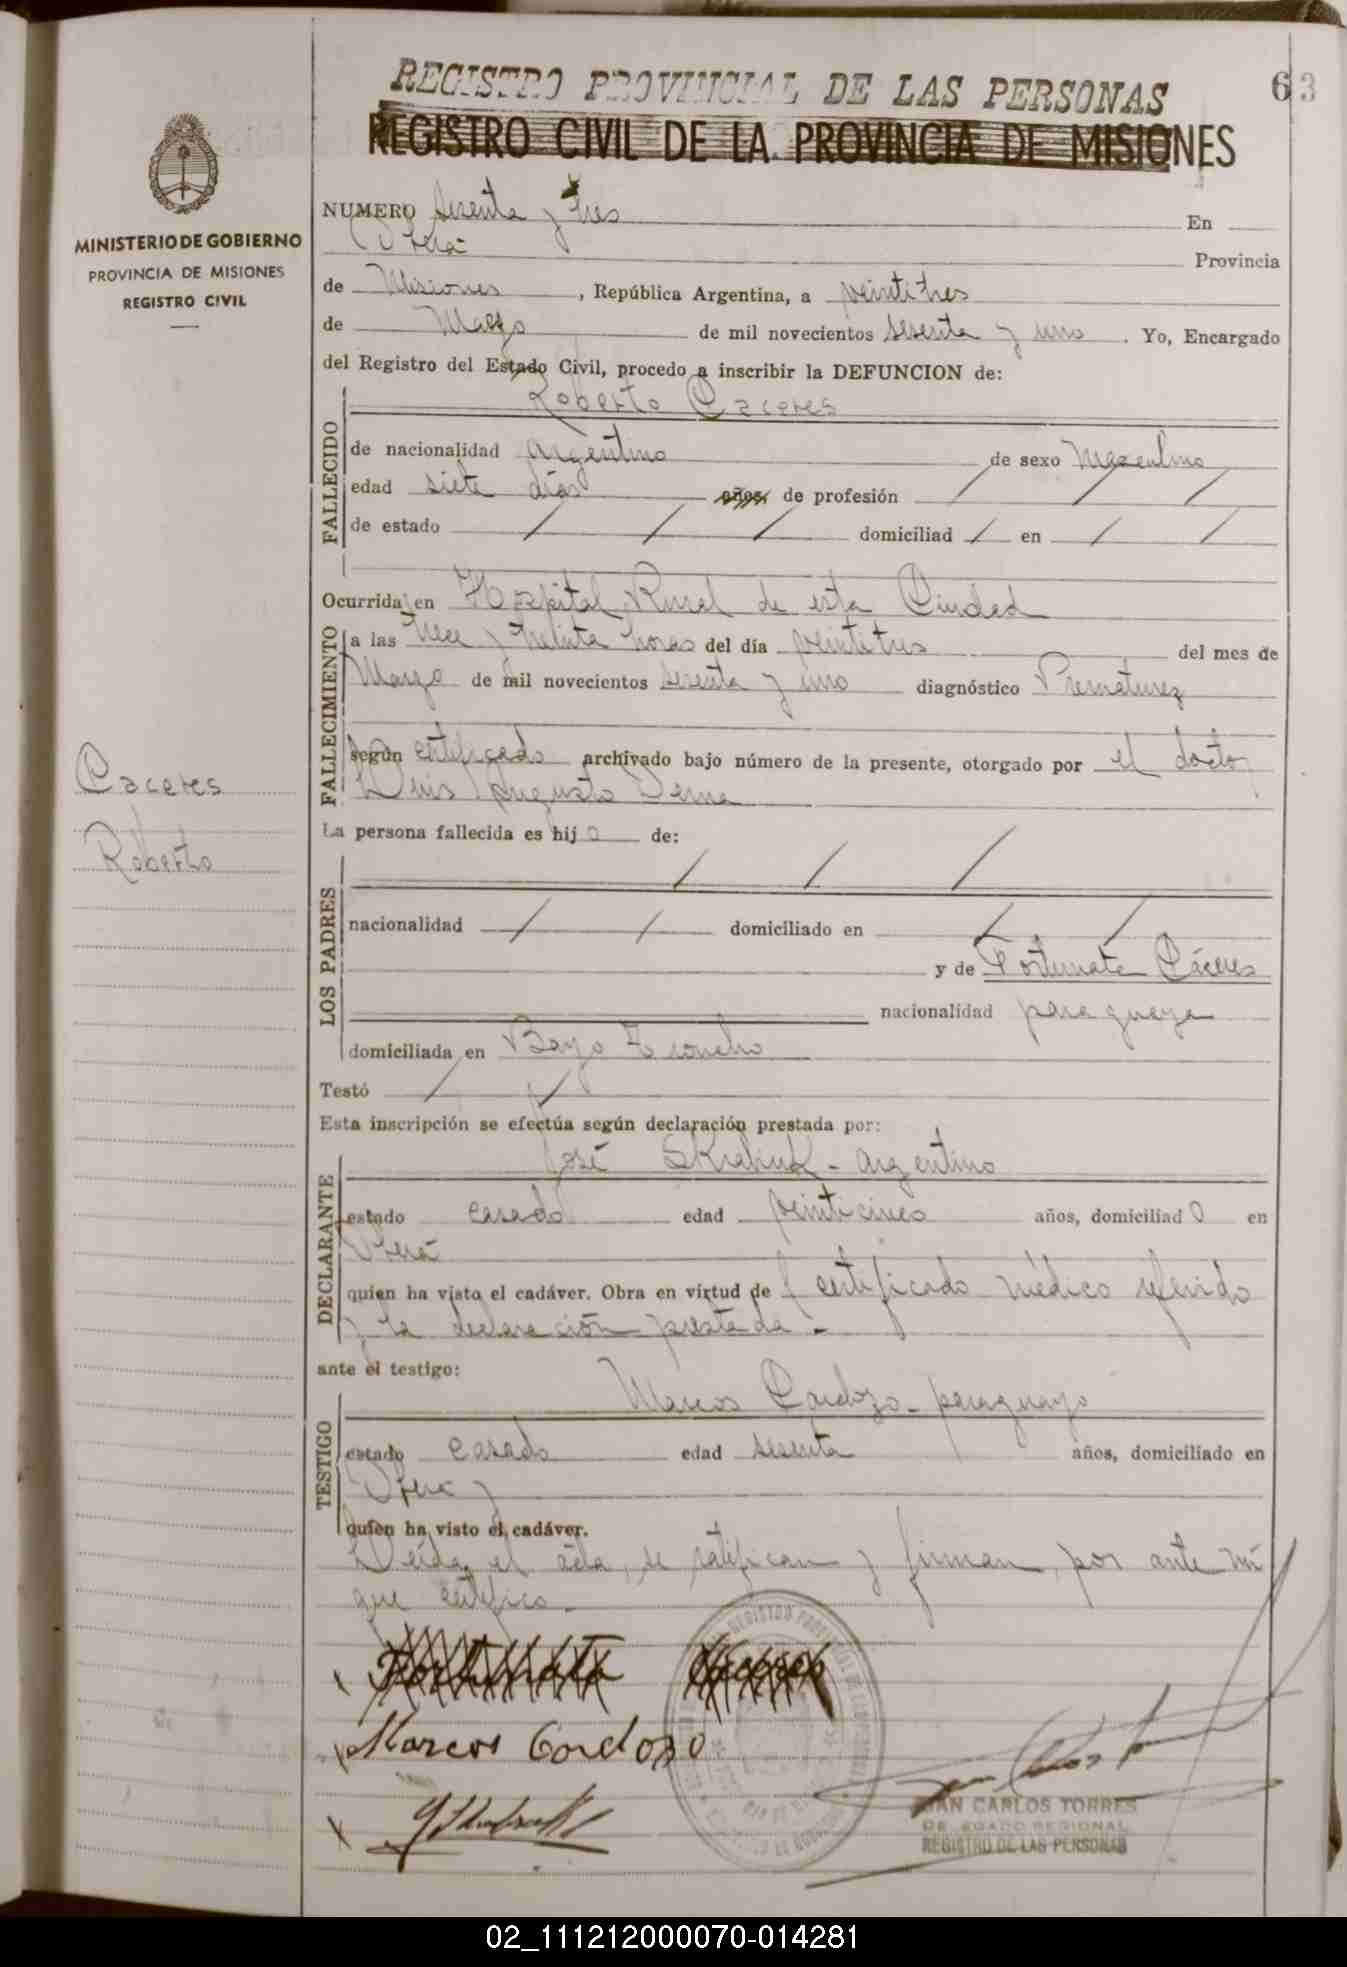 REGISTRO PROVINCIAL DE LAS PERSONAS
63
REGISTRO CIVIL DE LA PROVINCIA DE MISIONES
MINISTERIO DE GOBIERNO
PROVINCIA DE MISIONES
REGISTRO CIVIL
NUMERO Sesenta y tres En
Oberá Provincia
de Misiones, República Argentina, a veintitres
de Marzo de mil novecientos sesenta y uno. Yo, Encargado
del Registro del Estado Civil, procedo a inscribir la DEFUNCION de:
Roberto Caceres
FALLECIDO
de nacionalidad argentino de sexo Masculino
edad siete días años de profesión / / /
de estado / / / domiciliad / en / /
Ocurrida en Hospital Rural de esta Ciudad
FALLECIMIENTO
a las trece y treinta horas del día veintitres del mes de
Marzo de mil novecientos sesenta y uno diagnóstico Prematurez
según certificado archivado bajo número de la presente, otorgado por el doctor
Luis Augusto
Caceres
Roberto
La persona fallecida es hijo de:
/ / /
LOS PADRES
nacionalidad / / domiciliado en / /
y de Fortunata Cáceres
nacionalidad paraguaya
domiciliada en Bayo Troncho
Testó / /
Esta inscripción se efectúa según declaración prestada por:
José - argentino
DECLARANTE
estado casado edad veinticinco años, domiciliado en
Oberá
quien ha visto el cadáver. Obra en virtud de certificado médico referido
y la declaración prestada.-
ante el testigo:
Marcos Cardozo - paraguayo
TESTIGO
estado casado edad sesenta años, domiciliado en
Oberá y
quien ha visto el cadáver.
Leída el acta, se ratifican y firman, por ante mí
que certifico.-
Fortunata Caceres
Marcos Cardozo
JUAN CARLOS TORRES
DELEGADO REGIONAL
REGISTRO DE LAS PERSONAS
02_111212000070-014281